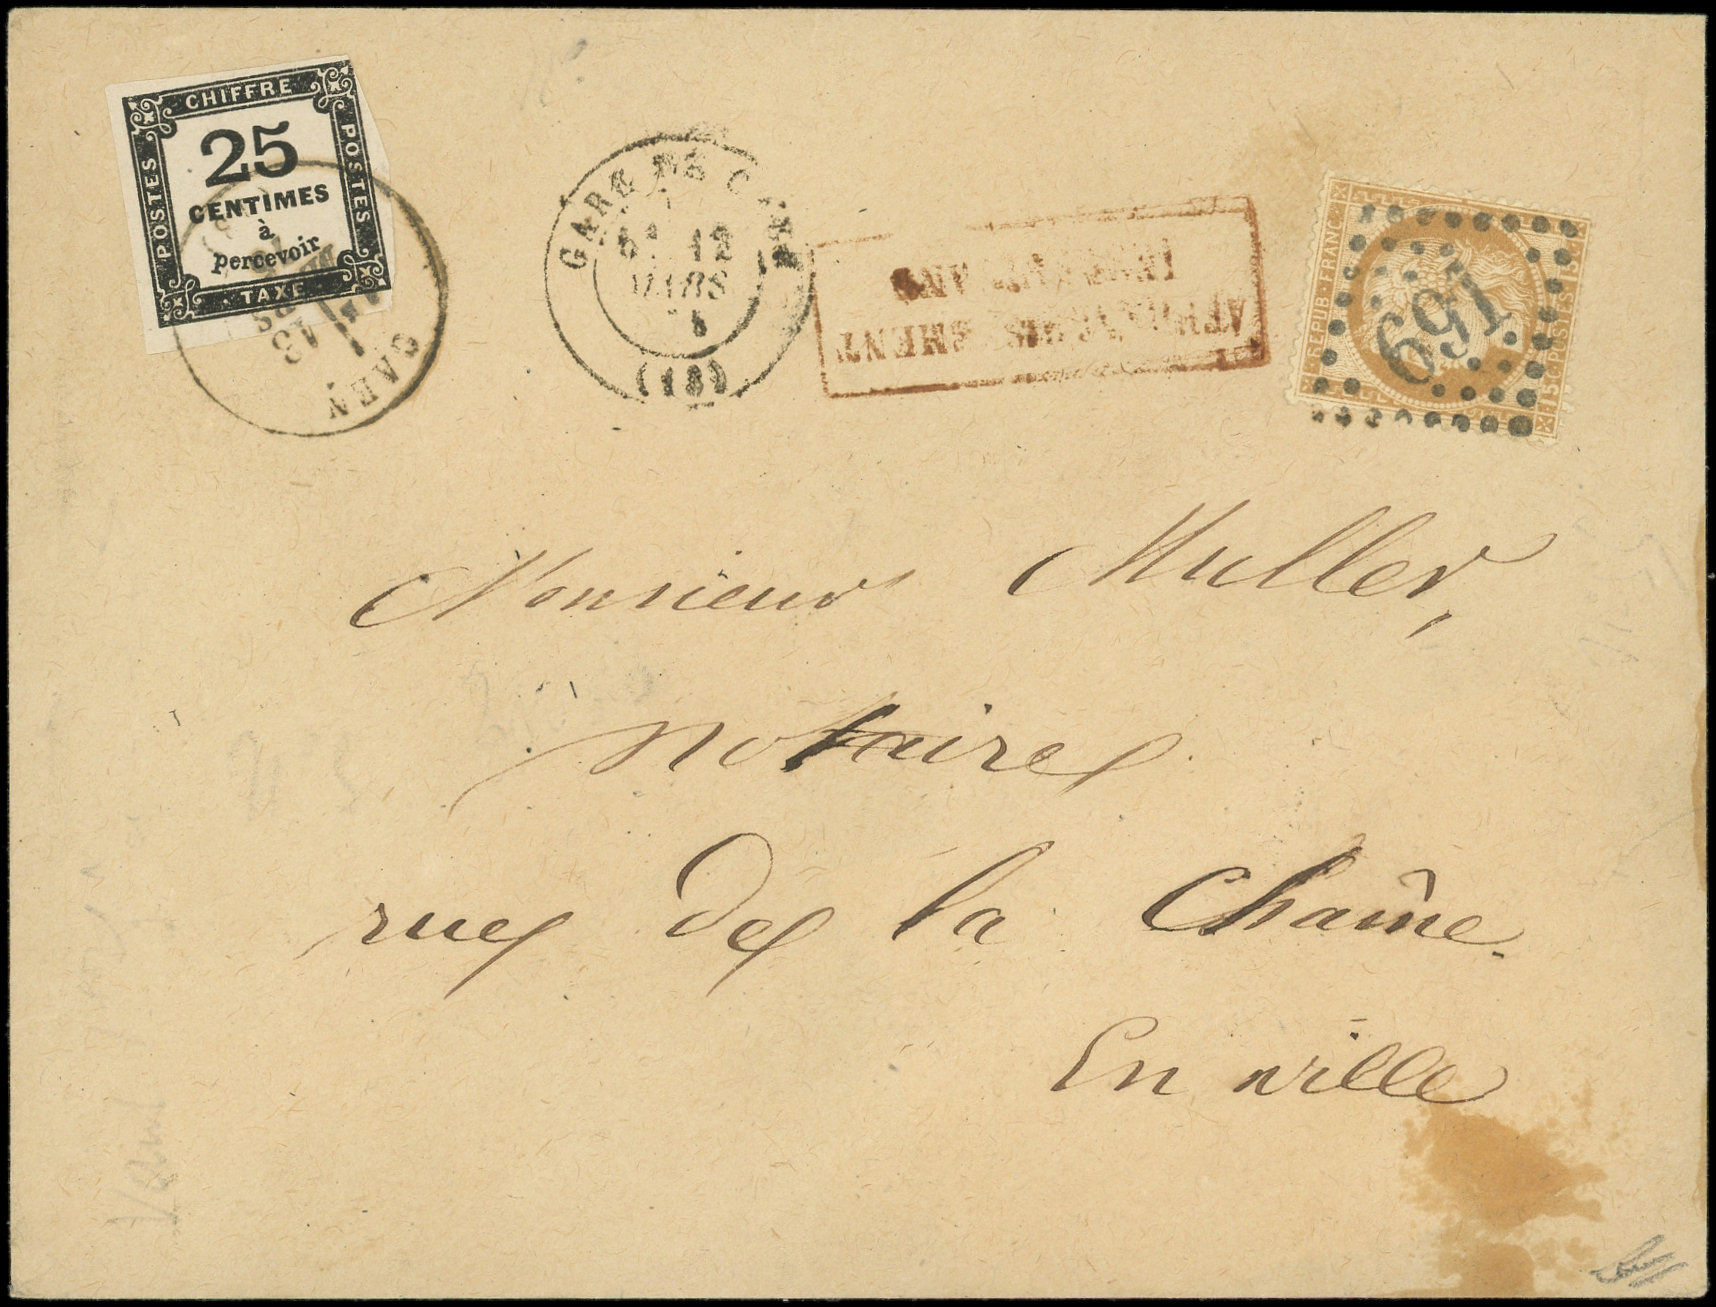 CHIFFRE
POSTES
25
CENTIMES
à
percevoir
POSTES
TAXE
CAEN
GARE DE
12
MARS
(13)
AFFRANCHISSEMENT
REPUB. FRANC.
15 c. POSTES 15 c.
691
Monsieur Muller,
notaire
rue de la Chaîne.
En ville